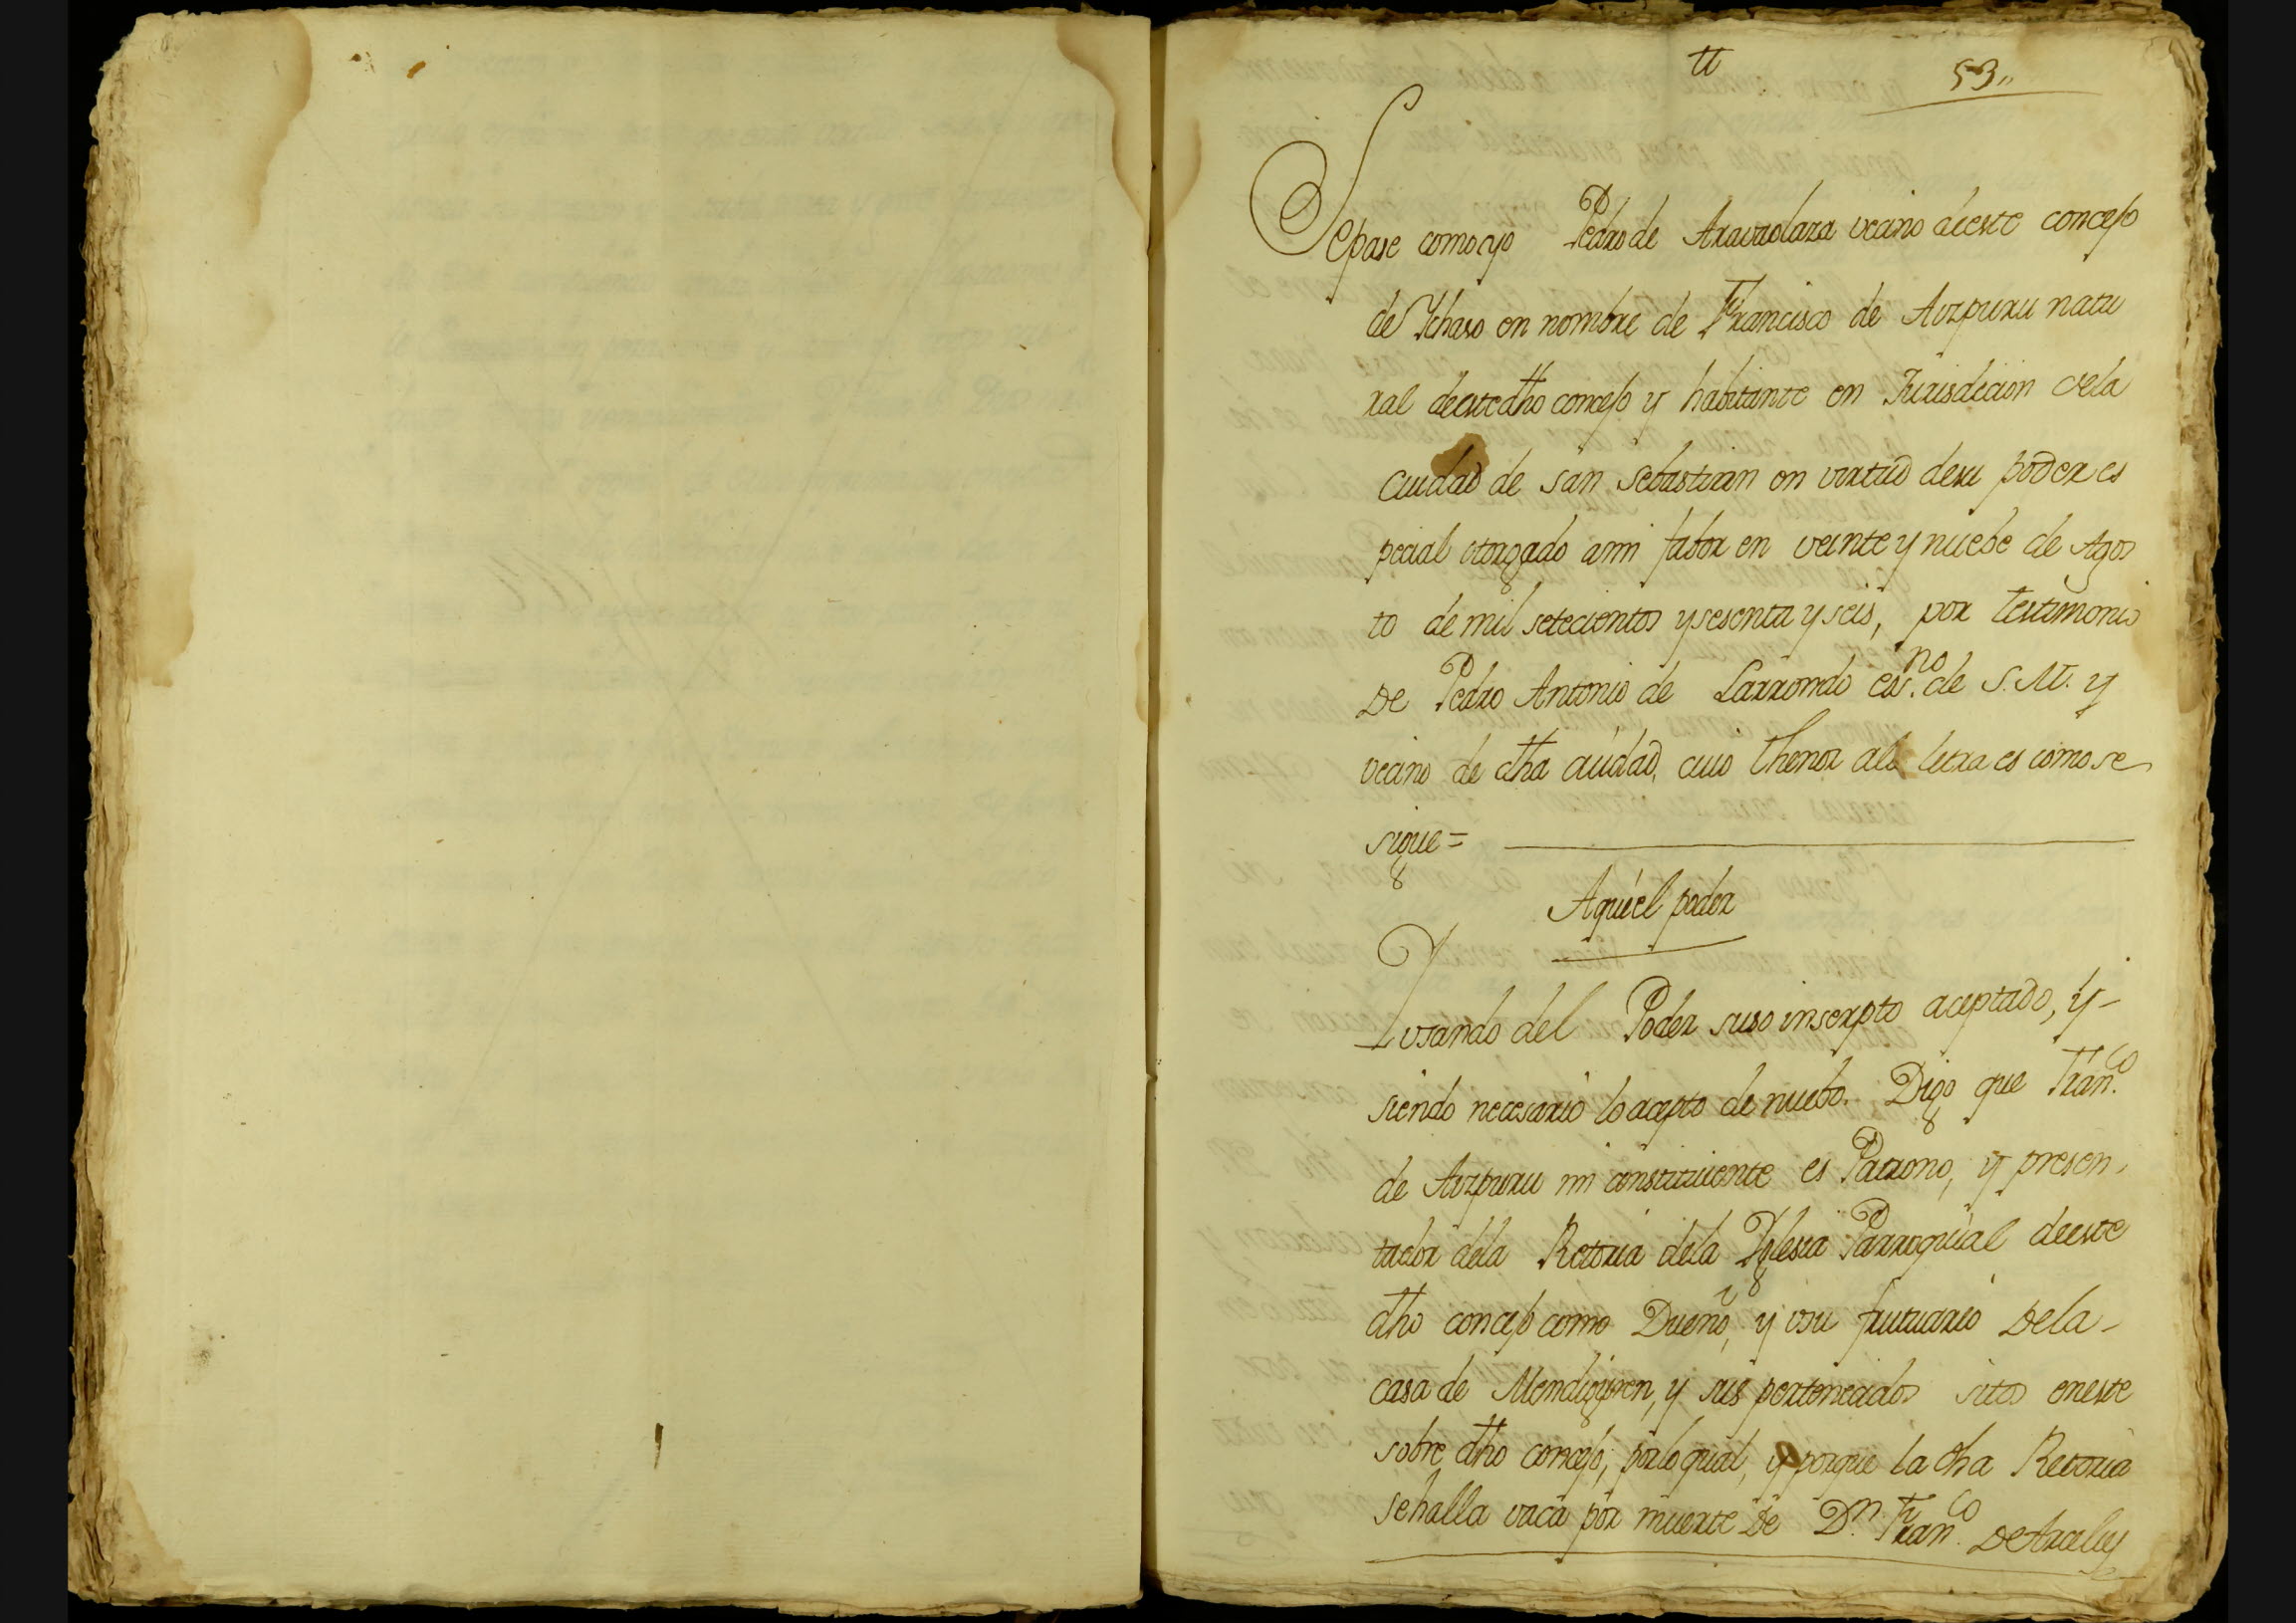 tt
53,,
Sepase como yo Pedro de Araurolaza vecino de este concejo
de Ychaso en nombre de Francisco de Aizpuru natu
ral de este dho concejo y habitante en Jurisdicion dela
Ciudad de san sebastian en virtud de su poder es
pecial otorgado a mi fabor en veinte y nuebe de Agos
to de mil setecientos y sesenta y seis, por testimonio
De Pedro Antonio de Larrondo ess.no de S.M. y
vecino de dha ciudad, cuio thenor ala letra es como se
sigue=
Aqui el poder
Y usando del Poder suso inserpto aceptado, y-
siendo necesario lo acepto de nuebo. Digo que Fran.co
de Aizpuru mi constituiente es Patrono, y presen-
tador dela Retoria dela Yglesia Parroquial de este
dho concejo como Dueño, y usu frutuario Dela-
casa de Mendiguren, y sus pertenecidos sitos en este
sobre dho concejo; por lo qual, y porque la dha Retoria
se halla vaca por muerte De D.n Fran.co De